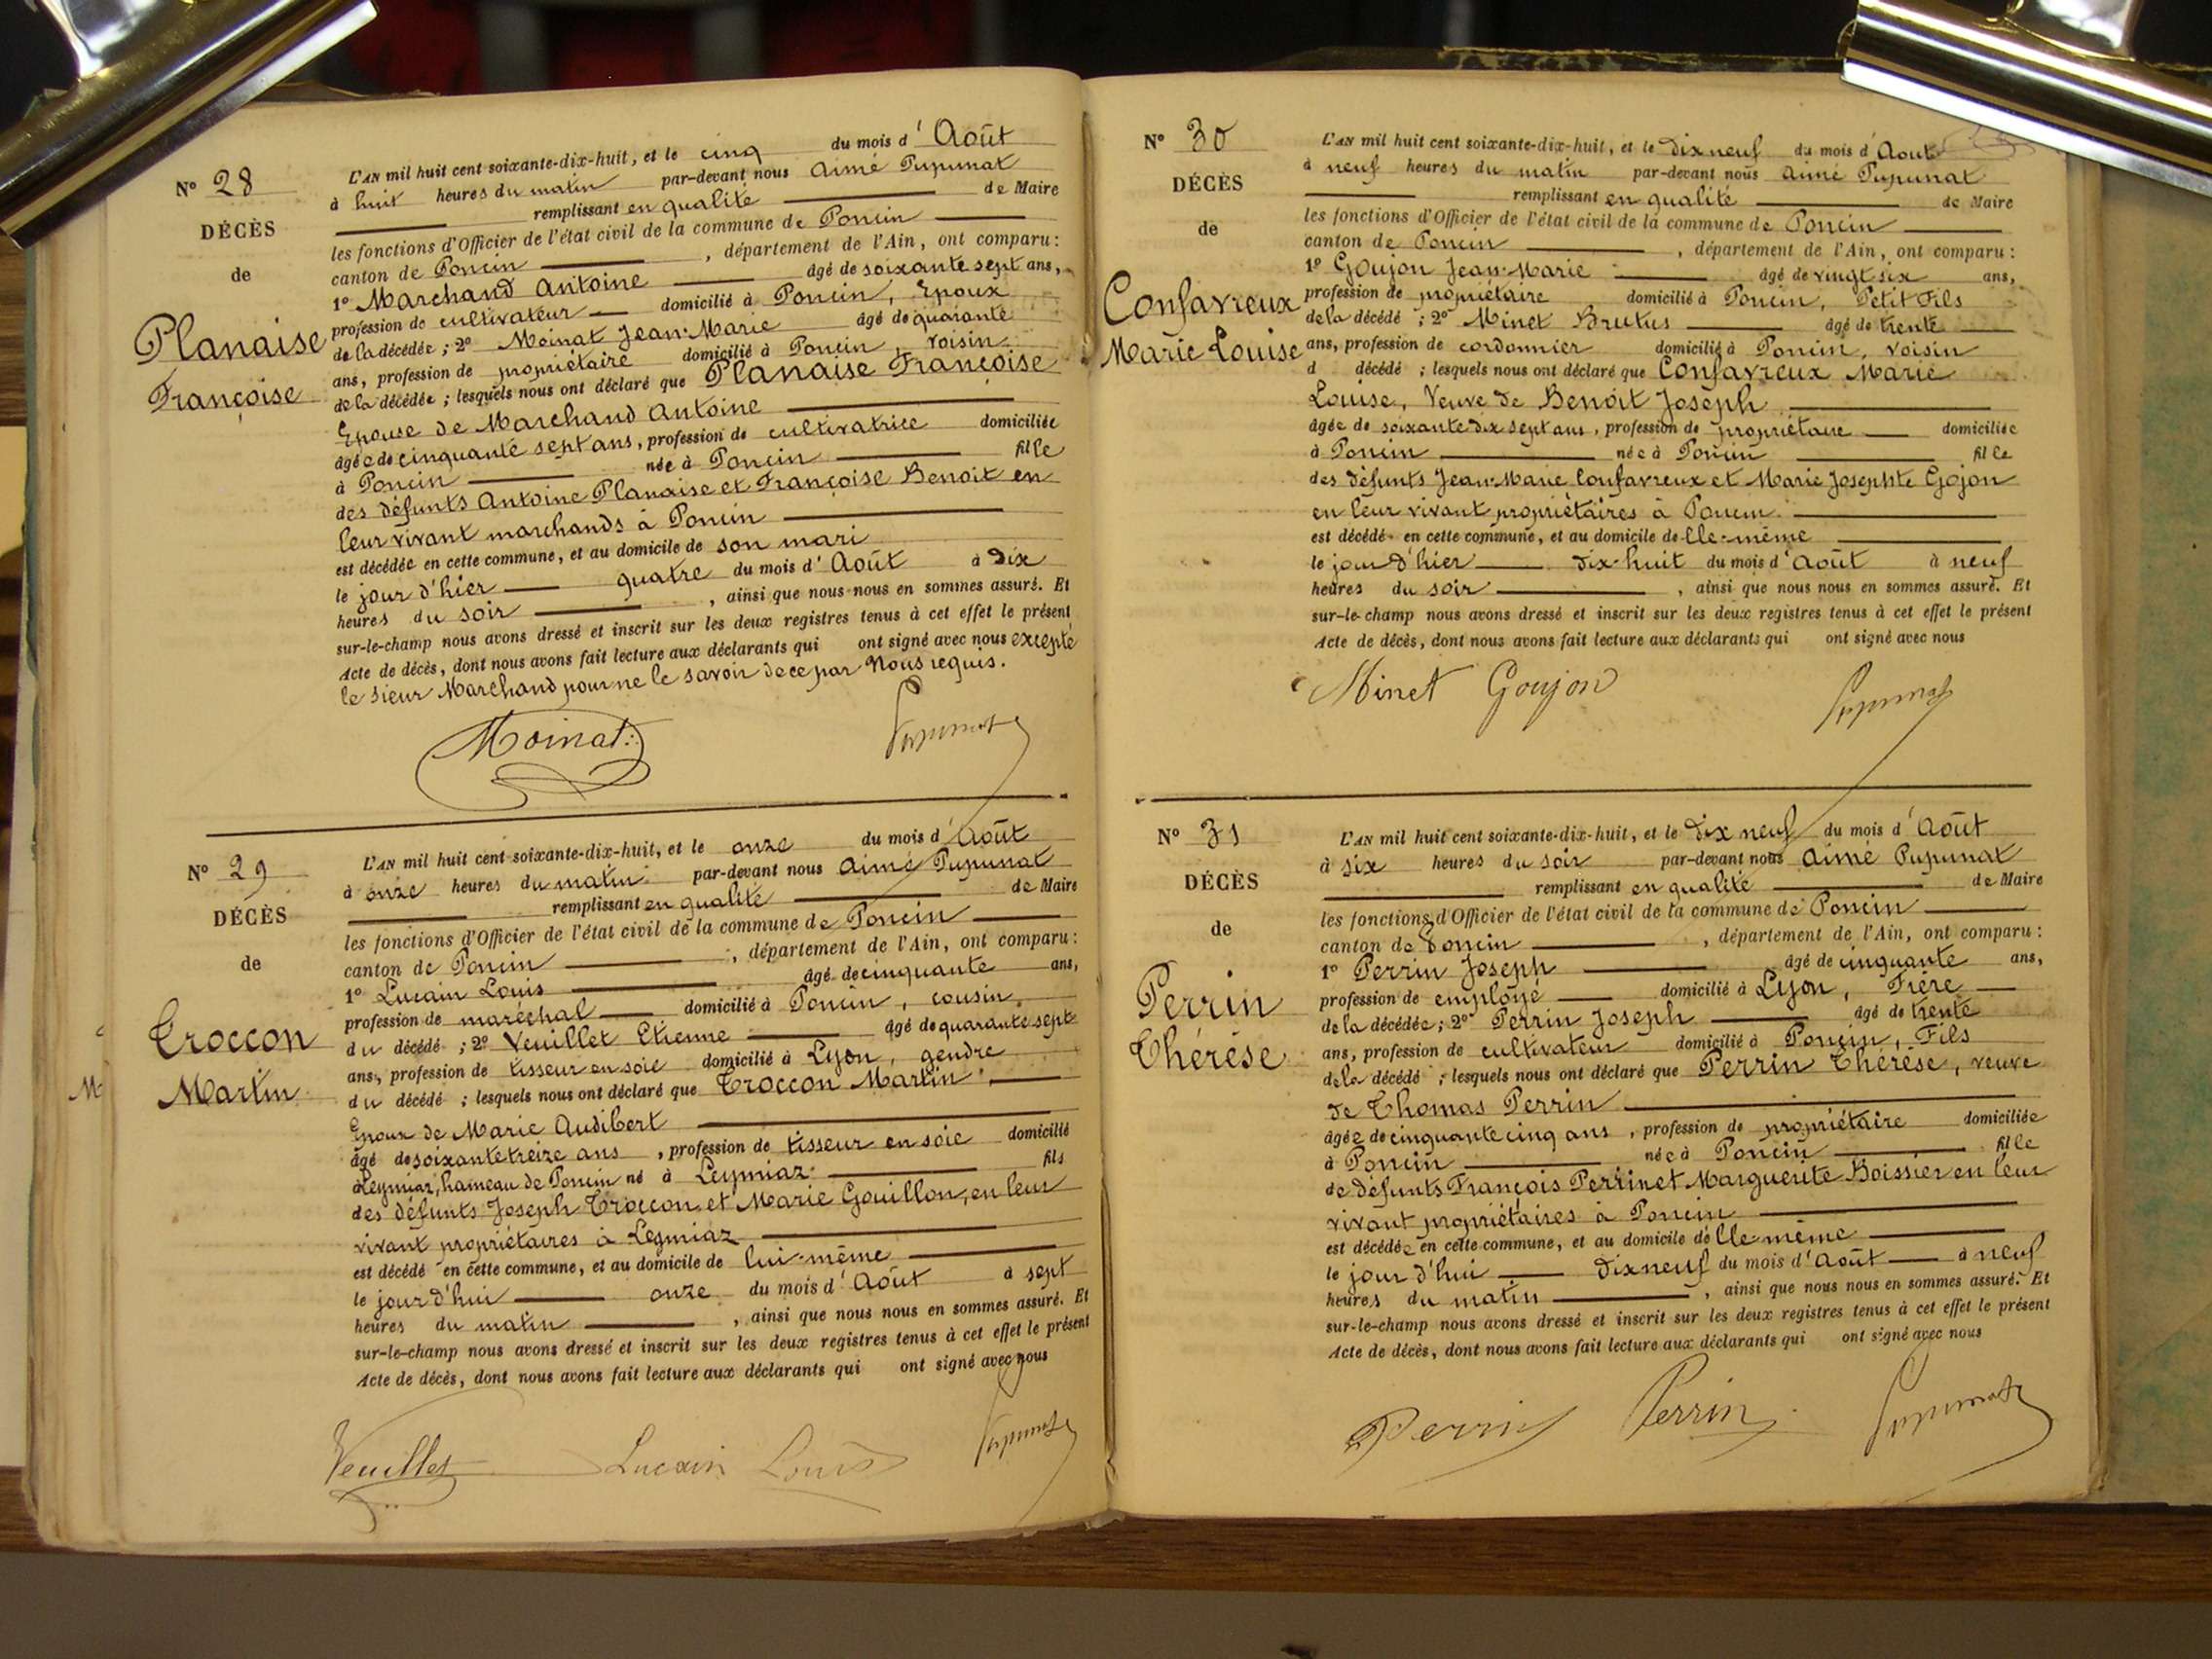 N° 28
DÉCÈS
de
Planaise
Françoise
L'AN mil huit cent soixante-dix-huit, et le cinq du mois d'Août
à huit heures du matin par-devant nous Aimé Pupunat
remplissant en qualité de Maire
les fonctions d'Officier de l'état civil de la commune de Poncin
canton de Poncin, département de l'Ain, ont comparu :
1° Marchand Antoine âgé de soixante sept ans,
profession de cultivateur domicilié à Poncin, Epoux
de la décédée ; 2° Moinat Jean-Marie âgé de quarante
ans, profession de propriétaire domicilié à Poncin, voisin
de la décédée ; lesquels nous ont déclaré que Planaise Françoise
Epouse de Marchand Antoine
âgée de cinquante sept ans, profession de cultivatrice domiciliée
à Poncin née à Poncin fille
des défunts Antoine Planaise et Françoise Benoit en
leur vivant marchands à Poncin
est décédée en cette commune, et au domicile de son mari
le jour d'hier quatre du mois d'Août à dix
heures du soir, ainsi que nous nous en sommes assuré. Et
sur-le-champ nous avons dressé et inscrit sur les deux registres tenus à cet effet le présent
Acte de décès, dont nous avons fait lecture aux déclarants qui ont signé avec nous excepté
le sieur Marchand pour ne le savoir de ce par Nous requis.
Moinat Pupunat
N° 29
DÉCÈS
de
Troccon
Martin
M
L'AN mil huit cent soixante-dix-huit, et le onze du mois d'Août
à onze heures du matin par-devant nous Aimé Pupunat
remplissant en qualité de Maire
les fonctions d'Officier de l'état civil de la commune de Poncin
canton de Poncin, département de l'Ain, ont comparu :
1° Lucain Louis âgé de cinquante ans,
profession de maréchal domicilié à Poncin, cousin
du décédé ; 2° Veuillet Etienne âgé de quarante sept
ans, profession de tisseur en soie domicilié à Lyon, gendre
du décédé ; lesquels nous ont déclaré que Troccon Martin,
Epoux de Marie Audibert
âgé de soixante treize ans, profession de tisseur en soie domicilié
à Leymiaz, hameau de Poncin né à Leymiaz fils
des défunts Joseph Troccon et Marie Gouillon, en leur
vivant propriétaires à Leymiaz
est décédé en cette commune, et au domicile de lui-même
le jour d'hui onze du mois d'Août à sept
heures du matin, ainsi que nous nous en sommes assuré. Et
sur-le-champ nous avons dressé et inscrit sur les deux registres tenus à cet effet le présent
Acte de décès, dont nous avons fait lecture aux déclarants qui ont signé avec nous
Veuillet Lucain Louis Pupunat
N° 30
DÉCÈS
de
Confavreux
Marie Louise
L'AN mil huit cent soixante-dix-huit, et le dix neuf du mois d'Aout
à neuf heures du matin par-devant nous Aimé Pupunat
remplissant en qualité de Maire
les fonctions d'Officier de l'état civil de la commune de Poncin
canton de Poncin, département de l'Ain, ont comparu :
1° Goujon Jean-Marie âgé de vingt six ans,
profession de propriétaire domicilié à Poncin, Petit Fils
de la décédé ; 2° Minet Brutus âgé de trente
ans, profession de cordonnier domicilié à Poncin, voisin
d décédé ; lesquels nous ont déclaré que Confavreux Marie
Louise, Veuve de Benoit Joseph
âgée de soixante dix sept ans, profession de propriétaire domiciliée
à Poncin née à Poncin fille
des défunts Jean-Marie Confavreux et Marie Josephte Gojon
en leur vivant propriétaires à Poncin
est décédé en cette commune, et au domicile de lle-même
le jour d'hier dix-huit du mois d'Août à neuf
heures du soir, ainsi que nous nous en sommes assuré. Et
sur-le-champ nous avons dressé et inscrit sur les deux registres tenus à cet effet le présent
Acte de décès, dont nous avons fait lecture aux déclarants qui ont signé avec nous
Minet Goujon Pupunat
N° 31
DÉCÈS
de
Perrin
Thérèse
L'AN mil huit cent soixante-dix-huit, et le dix neuf du mois d'Août
à six heures du soir par-devant nous Aimé Pupunat
remplissant en qualité de Maire
les fonctions d'Officier de l'état civil de la commune de Poncin
canton de Poncin, département de l'Ain, ont comparu :
1° Perrin Joseph âgé de cinquante ans,
profession de employé domicilié à Lyon, Frère
de la décédée ; 2° Perrin Joseph âgé de trente
ans, profession de cultivateur domicilié à Poncin, Fils
de la décédé ; lesquels nous ont déclaré que Perrin Thérèse, veuve
de Thomas Perrin
âgée de cinquante cinq ans, profession de propriétaire domiciliée
à Poncin née à Poncin fille
de défunts François Perrin et Marguerite Boissier en leur
vivant propriétaires à Poncin
est décédée en cette commune, et au domicile de lle même
le jour d'hui dix neuf du mois d'Août à neuf
heures du matin, ainsi que nous nous en sommes assuré. Et
sur-le-champ nous avons dressé et inscrit sur les deux registres tenus à cet effet le présent
Acte de décès, dont nous avons fait lecture aux déclarants qui ont signé avec nous
Perrin Perrin Pupunat